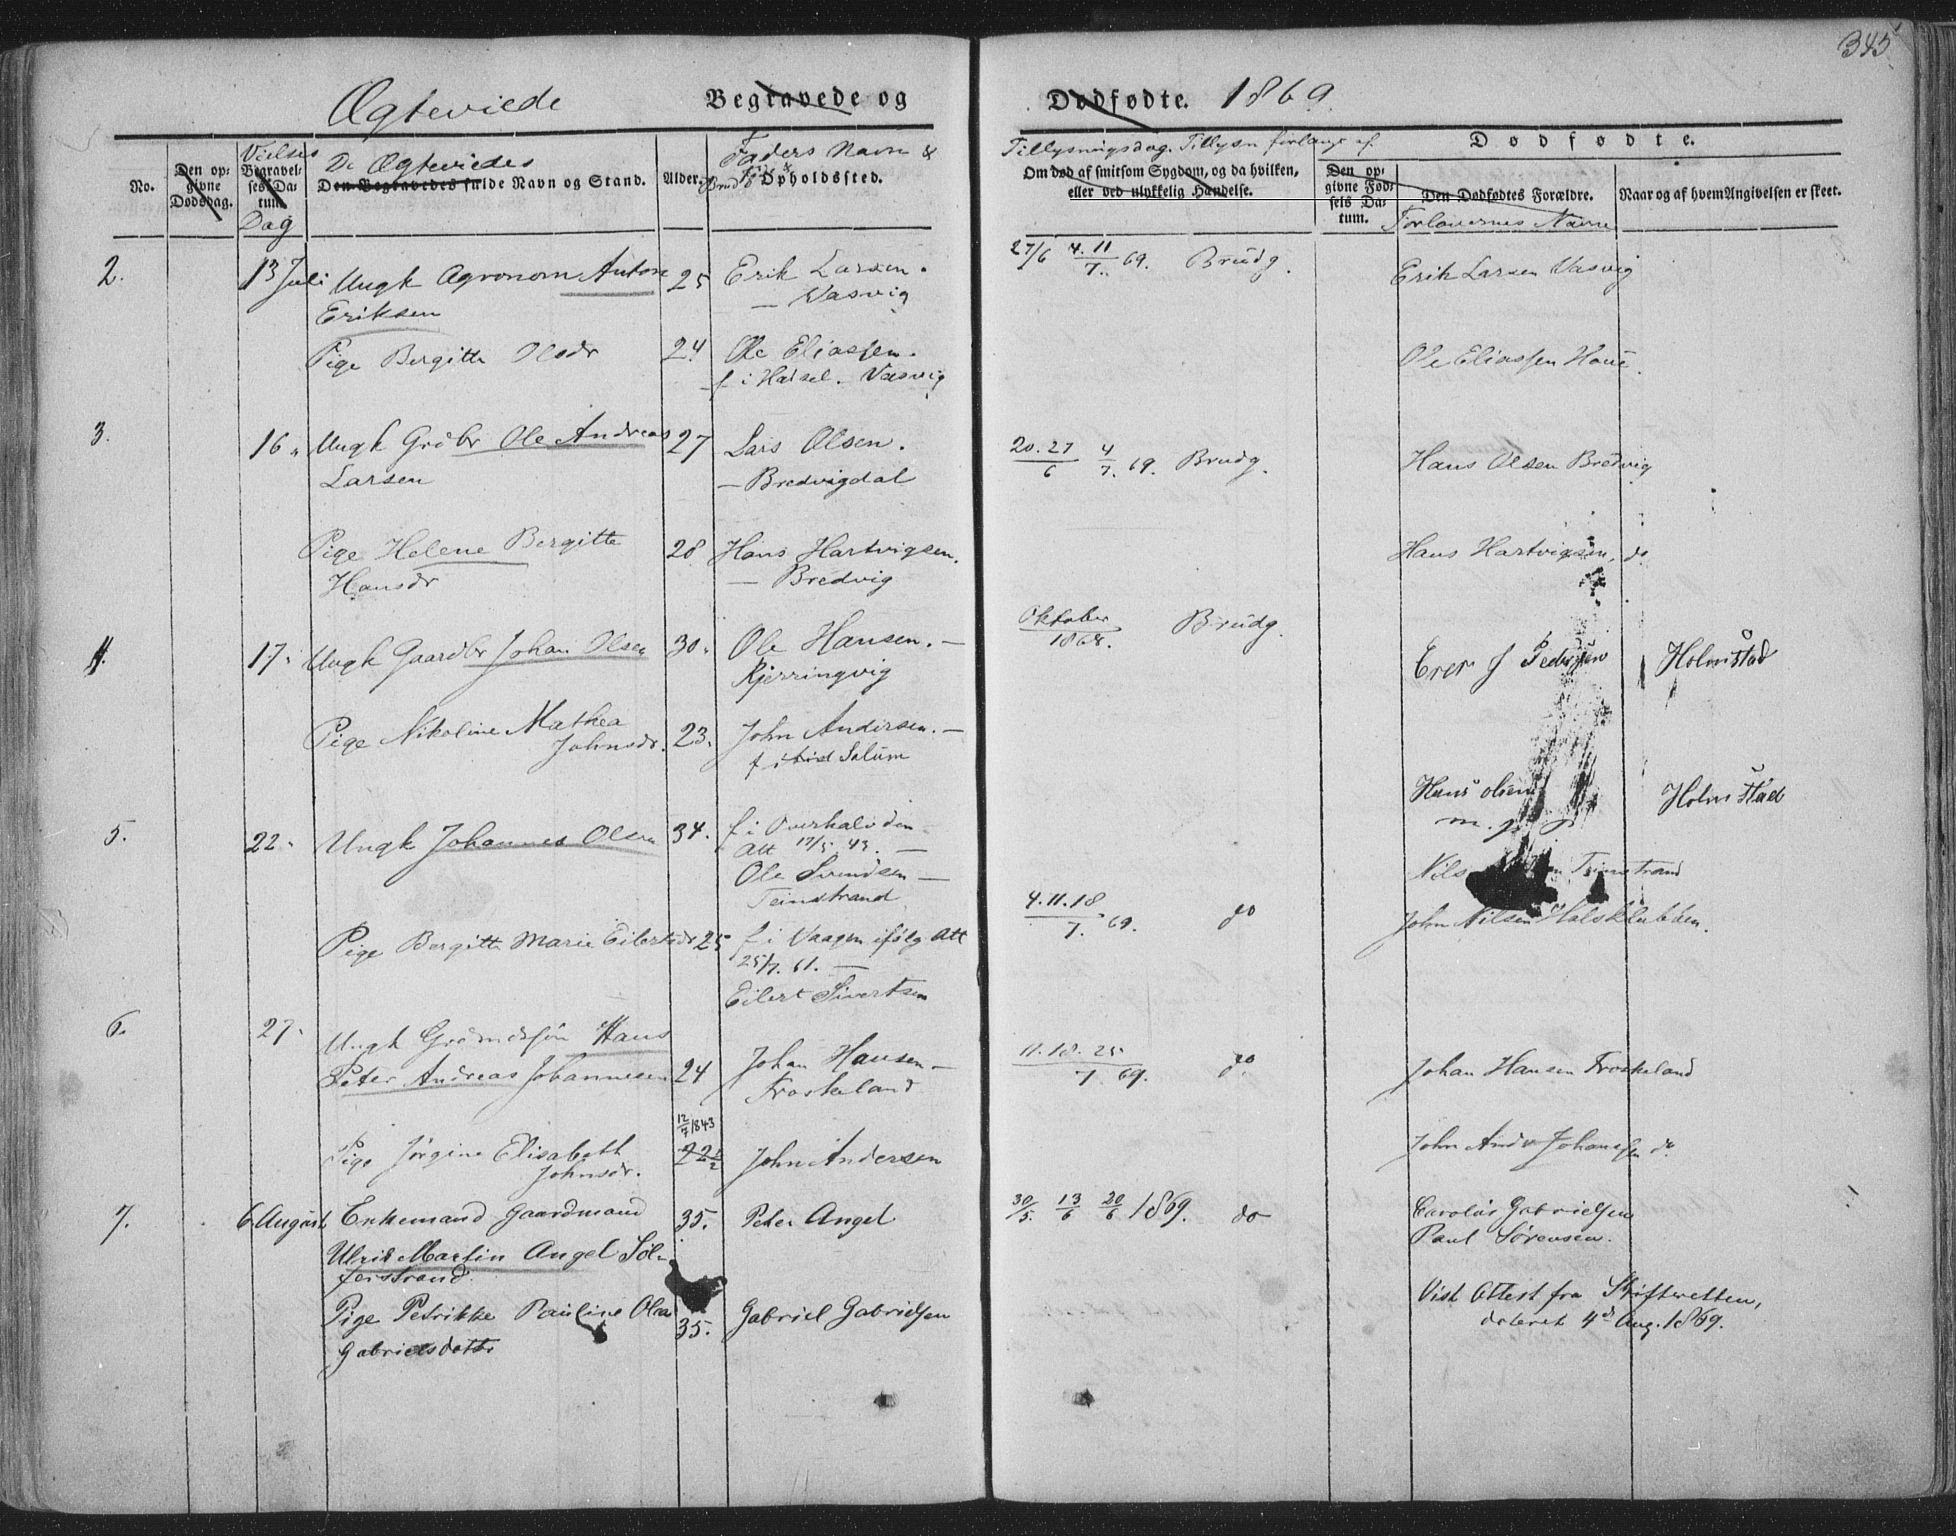 345
Ægteviede Begravede og Dødfødte. 1869
No.
Den opgivne Dødsdag.
Vielses Begravelses Datum. Dag
De Ægteviedes
Den Begravedes fulde Navn og Stand.
Alder.
Faders Navn &
Opholdssted.
Tillysningsdag. Tillysn forlangt af
Om død af smitsom Sygdom, og da hvilken,
eller ved ulykkelig Hændelse.
Dødfødte.
Den opgivne Fødsels Datum.
Den Dødfødtes Forældre.
Forlovernes Navne
Naar og af hvem Angivelsen er skeet.
2. 13 Juli Ungk Agronom Anton 25 Erik Larsen. 27/6 4. 11/7 69. Brudg. Erik Larsen Vasvig
Eriksen — Vasvig
Pige Bergitte Olsdr 24 Ole Eliassen. Ole Eliassen Houe.
f i Hadsel. Vasvig
3. 16 " Ungk Grdbr Ole Andreas 27 Lars Olsen. 20. 27/6 4/7. 69. Brudg. Hans Olsen Bredvig
Larsen — Bredvigdal
Pige Helene Bergitte 28 Hans Hartvigsen. Hans Hartvigsen, do
Hansdr — Bredvig
4. 17 " Ungk Gaardbr Johan Olsen 30. Ole Hansen. — Oktober 1868. Brudg. Pedersen Holmstad
Kjerringvig
Pige Nikoline Mathea 23. John Andersen. —
Johnsdr. f i Salum
Hans Olsen Holmstad
m. p. p.
5. 22. Ungk Johannes Olsen 34. f i Overhalvden
Att 17/5 43. —
Ole Svendsen — Nils Teinstrand
Teinstrand 4. 11. 18/7. 69. do John Nilsen Halsklubben.
Pige Bergitte Marie Eilertsdr 25 f i Vaagen ifølg Att
25/7. 61. —
Eilert Sivertsen
6. 27. Ungk Grdmdsøn Hans
Peter Andreas Johannesen 24 Johan Hansen — 11. 18. 25/7. 69. do Johan Hansen Froskeland
Froskeland
12/7 1843
Pige Jørgine Elisabeth 22 1/2 John Andersen John Andr Johansen do
Johnsdr.
7. 6 August Enkemand Gaardmand 35. Peter Angel 30/5. 13/6 20/6 1869. do Carolus Gabrielsen
Paul Sørensen.
Ulrik Martin Angel Sølferstrand.
Vist Attest fra Skifteretten,
Pige Petrikke Pauline Olea 35. Gabriel Gabrielsen dateret 4d Aug. 1869.
Gabrielsdatter